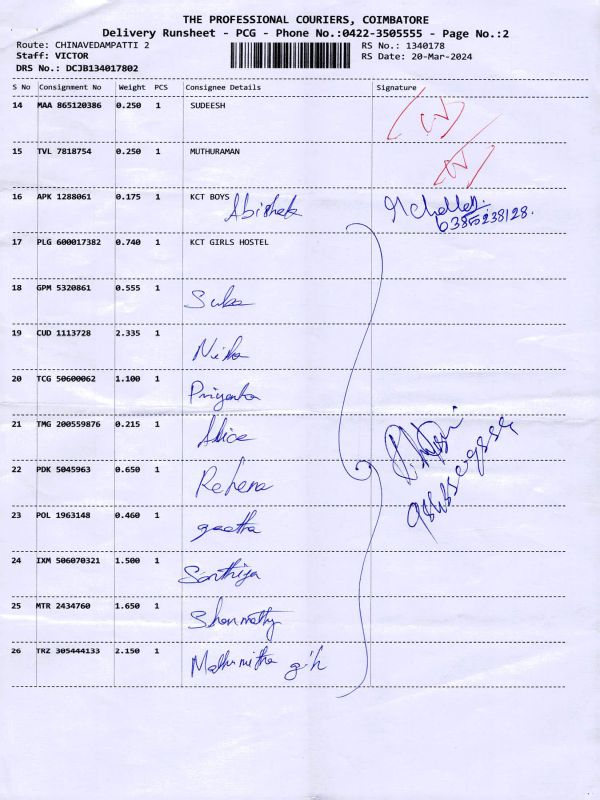 THE PROFESSIONAL COURIERS, COIMBATORE
Delivery Runsheet - PCG - Phone No.:0422-3505555 - Page No.:2
Route: CHINAVEDAMPATTI 2 RS No.: 1340178
Staff: VICTOR RS Date: 20-Mar-2024
DRS No.: DCJB134017802
S No Consignment No Weight PCS Consignee Details Signature
14 MAA 865120386 0.250 1 SUDEESH
15 TVL 7818754 0.250 1 MUTHURAMAN
16 APK 1288061 0.175 1 KCT BOYS Abishek
17 PLG 600017382 0.740 1 KCT GIRLS HOSTEL
18 GPM 5320861 0.555 1
19 CUD 1113728 2.335 1
20 TCG 50600062 1.100 1 Priyanka
21 TMG 200559876 0.215 1 Alice
22 PDK 5045963 0.650 1 Rehena
23 POL 1963148 0.460 1 geetha
24 IXM 506070321 1.500 1 Santhiya
25 MTR 2434760 1.650 1 Shanmathy
26 TRZ 305444133 2.150 1 Madhumitha